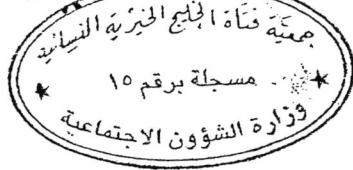 جمعية فتاة الخليج الخيرية النسائية
مسجلة برقم ١٥
وزارة الشؤون الاجتماعية